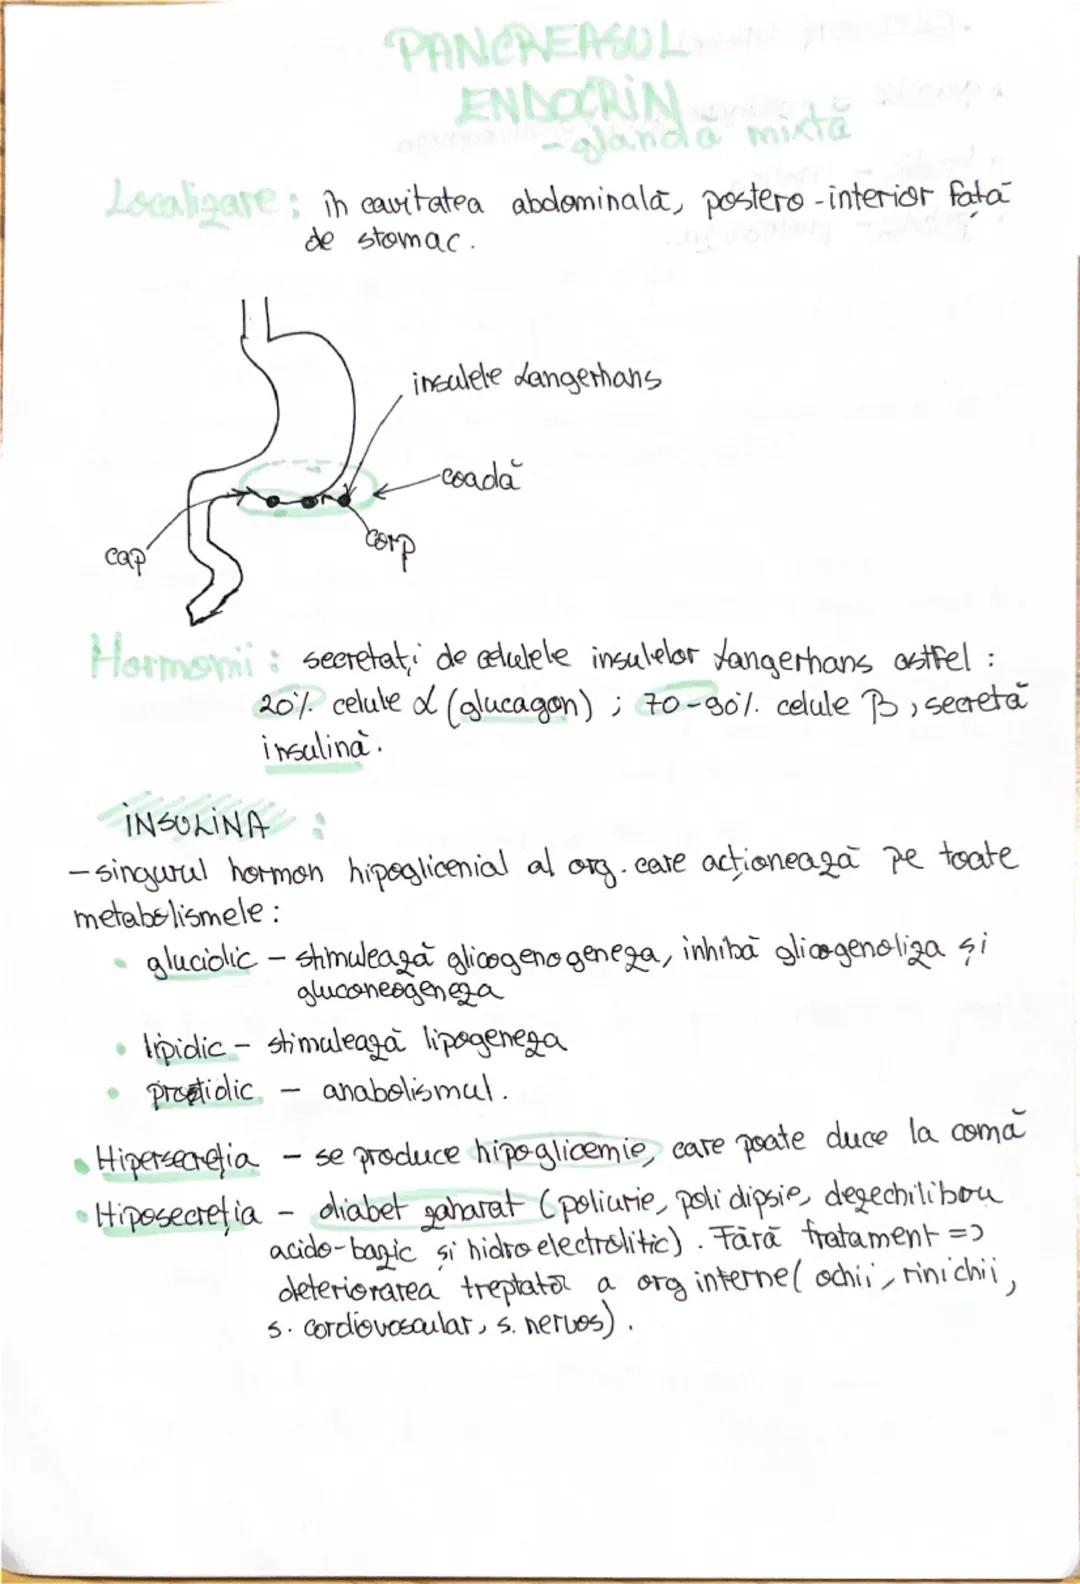 PANCREASUL
ENDOCRIN
- glandă mixtă
Localizare: în cavitatea abdominală, postero-interior față
de stomac.
insulele Langerhans
coadă
corp
cap
Hormonii: secretați de celulele insulelor Langerhans astfel:
20% celule α (glucagon); 70-90% celule β, secretă
insulină.
INSULINA:
- singurul hormon hipoglicenial al org. care acționează pe toate
metabolismele:
• glucidic - stimulează glicogenogeneza, inhibă glicogenoliza și
gluconeogeneza
• lipidic - stimulează lipogeneza
• protidic - anabolismul.
• Hipersecreția - se produce hipoglicemie, care poate duce la comă
• Hiposecreția - diabet zaharat (poliurie, polidipsie, dezechilibru
acido-bazic și hidroelectrolitic). Fără tratament =>
deteriorarea treptată a org interne (ochii, rinichii,
s. cardiovascular, s. nervos).